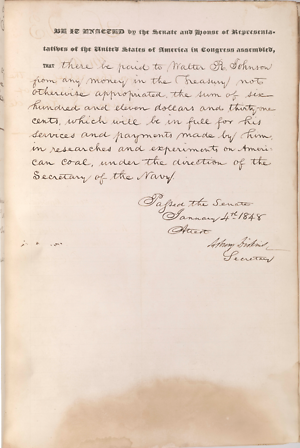 BE IT ENACTED by the Senate and House of Representa-
tatives of the United States of America in Congress assembled,
THAT there be paid to Walter R. Johnson
from any money in the Treasury not
otherwise appropriated, the sum of six
hundred and eleven dollars and thirty one
cents, which will be in full for his
services and payments made by him
in researches and experiments on Ameri-
can coal, under the direction of the
Secretary of the Navy
Passed the Senate
January 4th 1848
Attest
Secretary